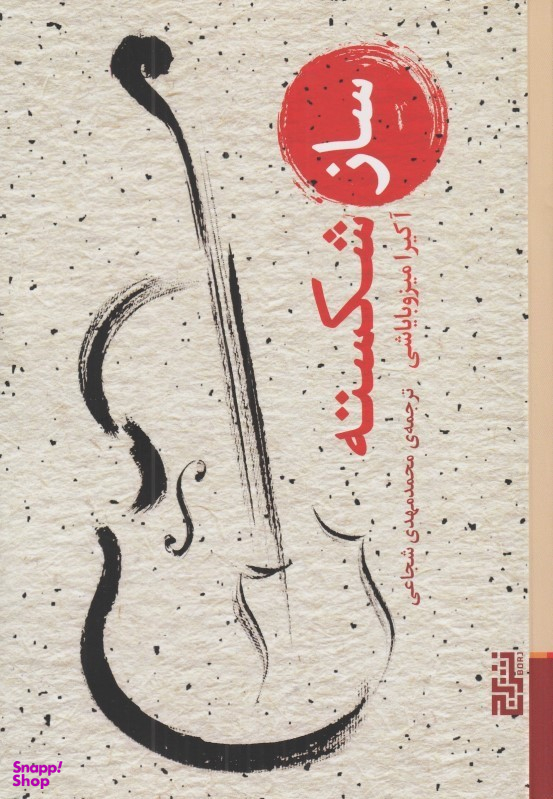 ساز
شکسته
آکیرا میزوبایاشی ترجمه‌ی محمدمهدی شجاعی
نشر برج
BORJ
Snapp!
Shop